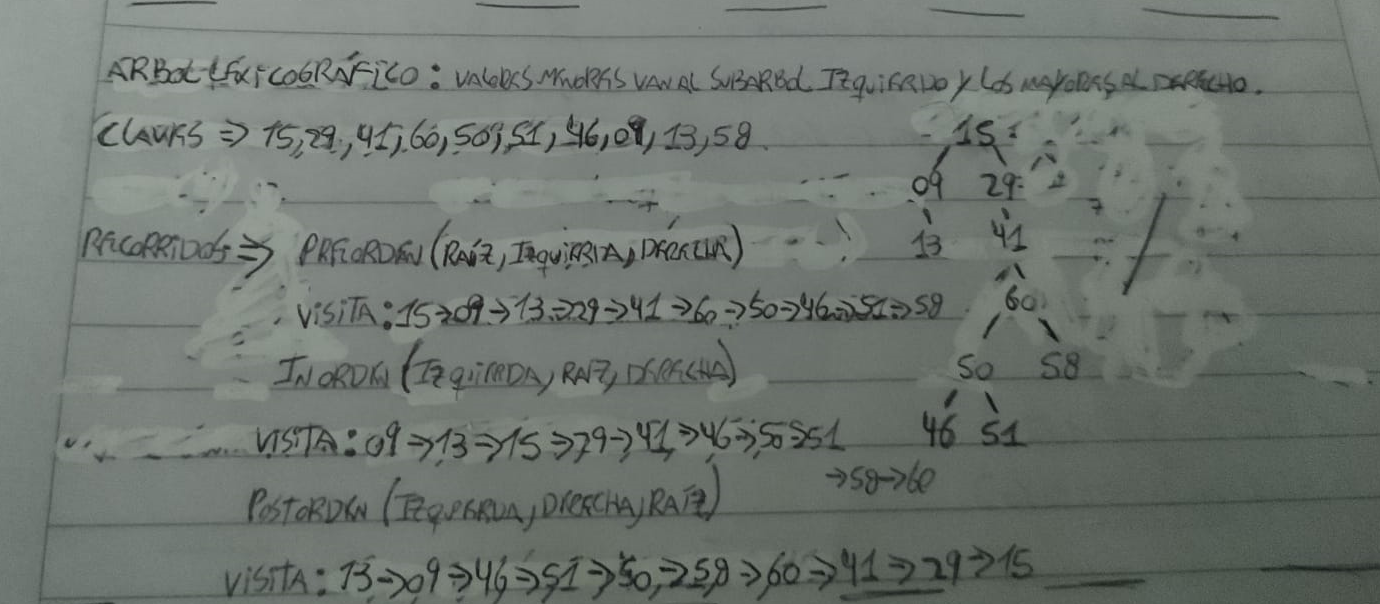 ARBOL LEXICOGRÁFICO: VALORES MENORES VAN AL SUBARBOL IZQUIERDO Y LOS MAYORES AL DERECHO.
CLAVES => 15,29,41,60,50,51,46,09,13,58.
15
09 29
13 41
60
50 58
46 51
RECORRIDOS => PREORDEN (RAÍZ, IZQUIERDA, DERECHA)
VISITA: 15->09->13->29->41->60->50->46->51->58
INORDEN (IZQUIERDA, RAÍZ, DERECHA)
VISITA: 09->13->15->29->41->46->50->51
->58->60
POSTORDEN (IZQUIERDA, DERECHA, RAÍZ)
VISITA: 13->09->46->51->50->58->60->41->29->15